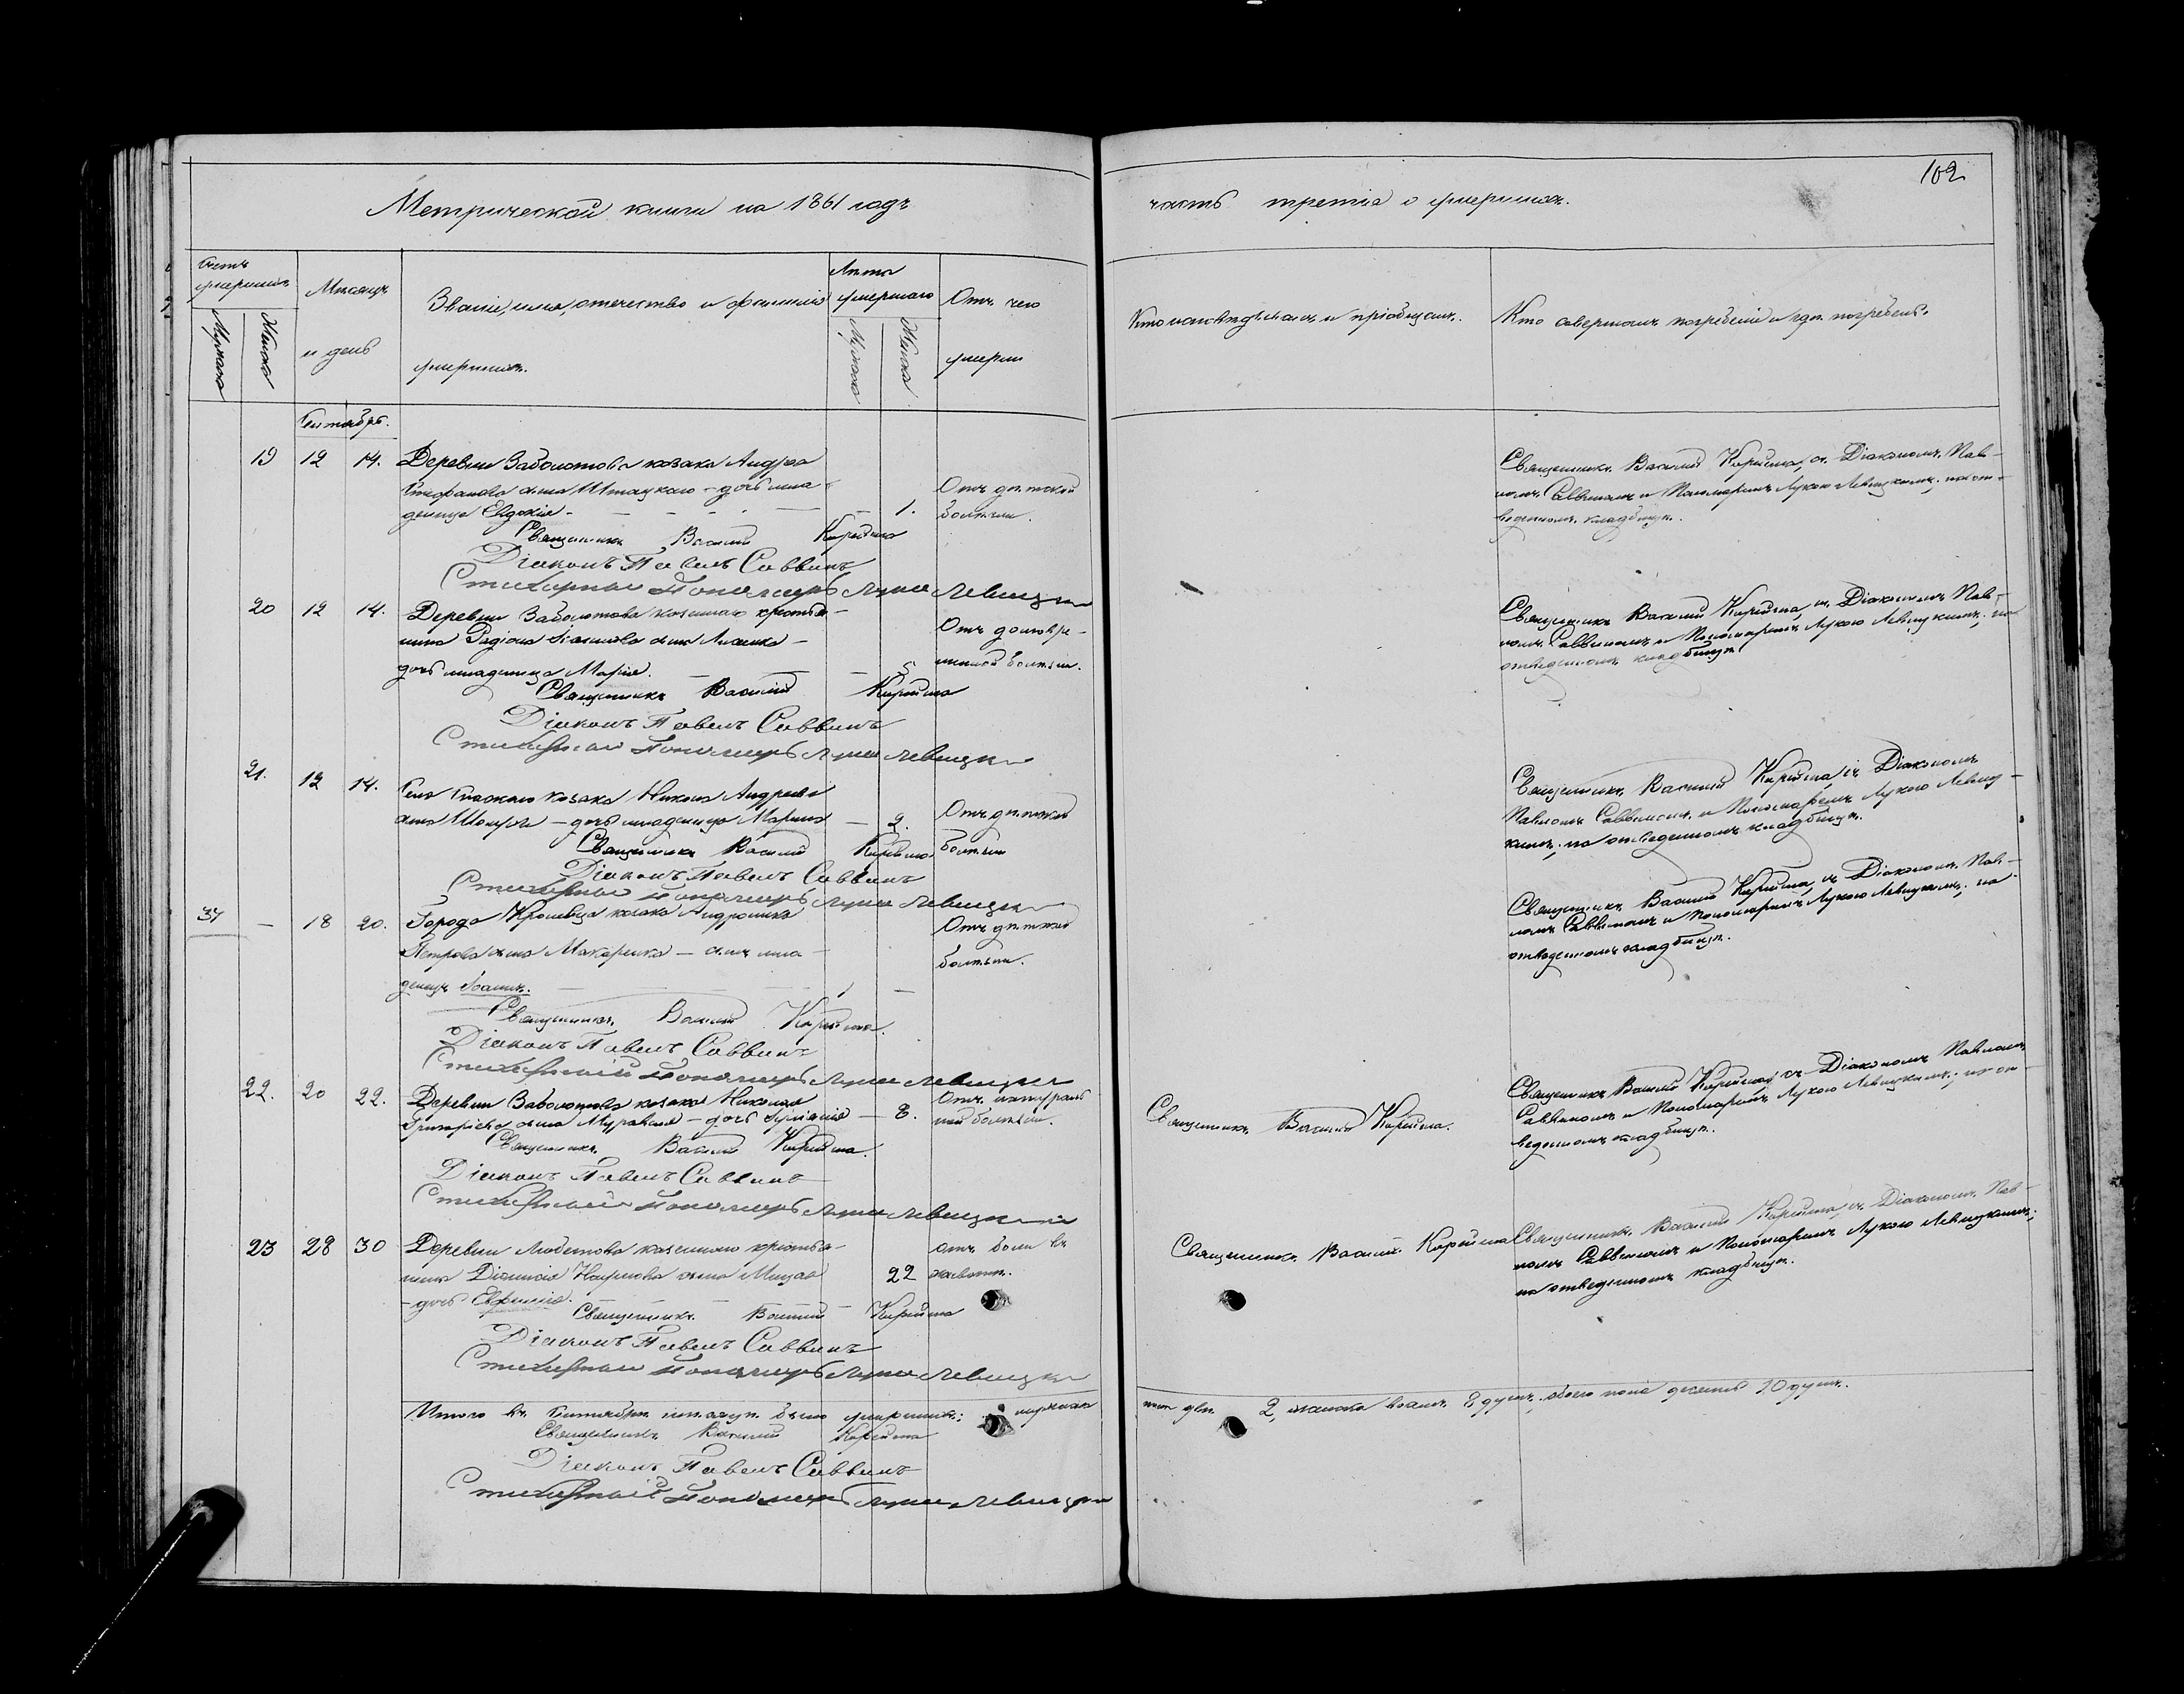 102
Метрической книги на 1861 годъ
часть третія о умершихъ.
Счетъ умершихъ
Мужеска
Женска
Мѣсяцъ
и день
Званіе, имя, отечество и фамилія
умершихъ.
Лѣта
умершаго
Мужеска
Женска
Отъ чего
умерли
Кто исповѣдывалъ и пріобщалъ.
Кто совершалъ погребеніе и гдѣ погребены.
Сентябрь.
19 12 14. Деревни Заболотова козака Андрея
Стефанова сына Штацкаго - дочь мла-
деница Евдокія - 1.
Отъ дѣтской
болѣзни.
Священникъ Василій Кирѣйма, съ Діакономъ Пав-
ломъ Саввинымъ и Пономаремъ Лукою Левицкимъ; на от-
веденномъ кладбищѣ.
Священникъ Василій Кирѣйма
Діаконъ Павелъ Саввинъ
Стихарный Пономарь Лука Левицкій
20 12 14. Деревни Заболотова казеннаго крестья-
нина Радіона сына
дочь младеница Марія. 5
Отъ долговре-
менной болѣзни.
Священникъ Василій Кирѣйма, съ Діакономъ Пав-
ломъ Саввинымъ и Пономаремъ Лукою Левицкимъ; на
отведенномъ кладбищѣ.
Священникъ Василій Кирѣйма
Діаконъ Павелъ Саввинъ
Стихарный Пономарь Лука Левицкій
21. 12 14. Села Спаскаго козака Никона Андреева
сына - дочь младеница Марина - 2.
Отъ дѣтской
болѣзни
Священникъ Василій Кирѣйма, съ Діакономъ
Павломъ Саввинымъ и Пономаремъ Лукою Левиц-
кимъ; на отведенномъ кладбищѣ.
Священникъ Василій Кирѣйма
Діаконъ Павелъ Саввинъ
Стихарный Пономарь Лука Левицкій
34 - 18 20. Города Кролевца козака Андроника
Петрова сына Макаренка - сынъ мла-
денецъ Іоаннъ. 1 -
Отъ дѣтской
болѣзни.
Священникъ Василій Кирѣйма, съ Діакономъ Пав-
ломъ Саввинымъ и Пономаремъ Лукою Левицкимъ; на
отведенномъ кладбищѣ.
Священникъ Василій Кирѣйма.
Діаконъ Павелъ Саввинъ
Стихарный Пономарь Лука Левицкій
22. 20 22. Деревни Заболотова козака Николая
сына Муравля - дочь - 8.
Отъ натураль
ной болѣзни.
Священникъ Василій Кирѣйма.
Священникъ Василій Кирѣйма, съ Діакономъ Павломъ
Саввинымъ и Пономаремъ Лукою Левицкимъ; на от-
веденномъ кладбищѣ.
Священникъ Василій Кирѣйма.
Діаконъ Павелъ Саввинъ
Стихарный Пономарь Лука Левицкій
23 28 30 Деревни Любитова казеннаго крестья-
нина Наумова сына 22
- дочь Евфимія.
отъ боли въ
животѣ.
Священникъ Василій Кирѣйма
Священникъ Василій Кирѣйма, съ Діакономъ Пав-
ломъ Саввинымъ и Пономаремъ Лукою Левицкимъ;
на отведенномъ кладбищѣ.
Священникъ Василій Кирѣйма
Діаконъ Павелъ Саввинъ
Стихарный Пономарь Лука Левицкій
Итого въ Сентябрѣ мѣсяцѣ было умершихъ: мужеска
пола двѣ 2, женска восемь 8 душъ, обоего пола десять 10 душъ.
Священникъ Василій Кирѣйма
Діаконъ Павелъ Саввинъ
Стихарный Пономарь Лука Левицкій